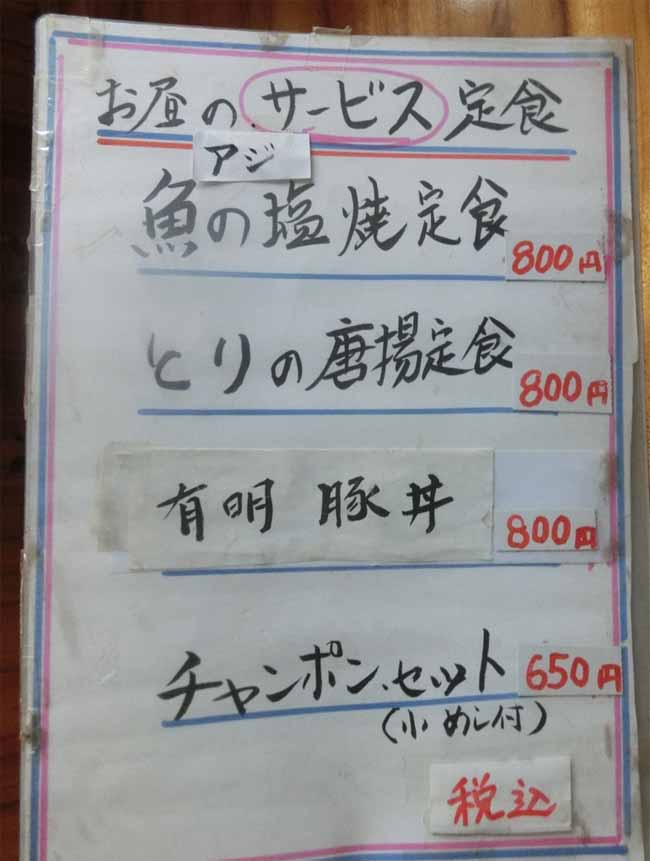 お昼のサービス定食
アジ
魚の塩焼定食
800円
とりの唐揚定食
800円
有明 豚丼
800円
チャンポン.セット 650円
(小めし付)
税込